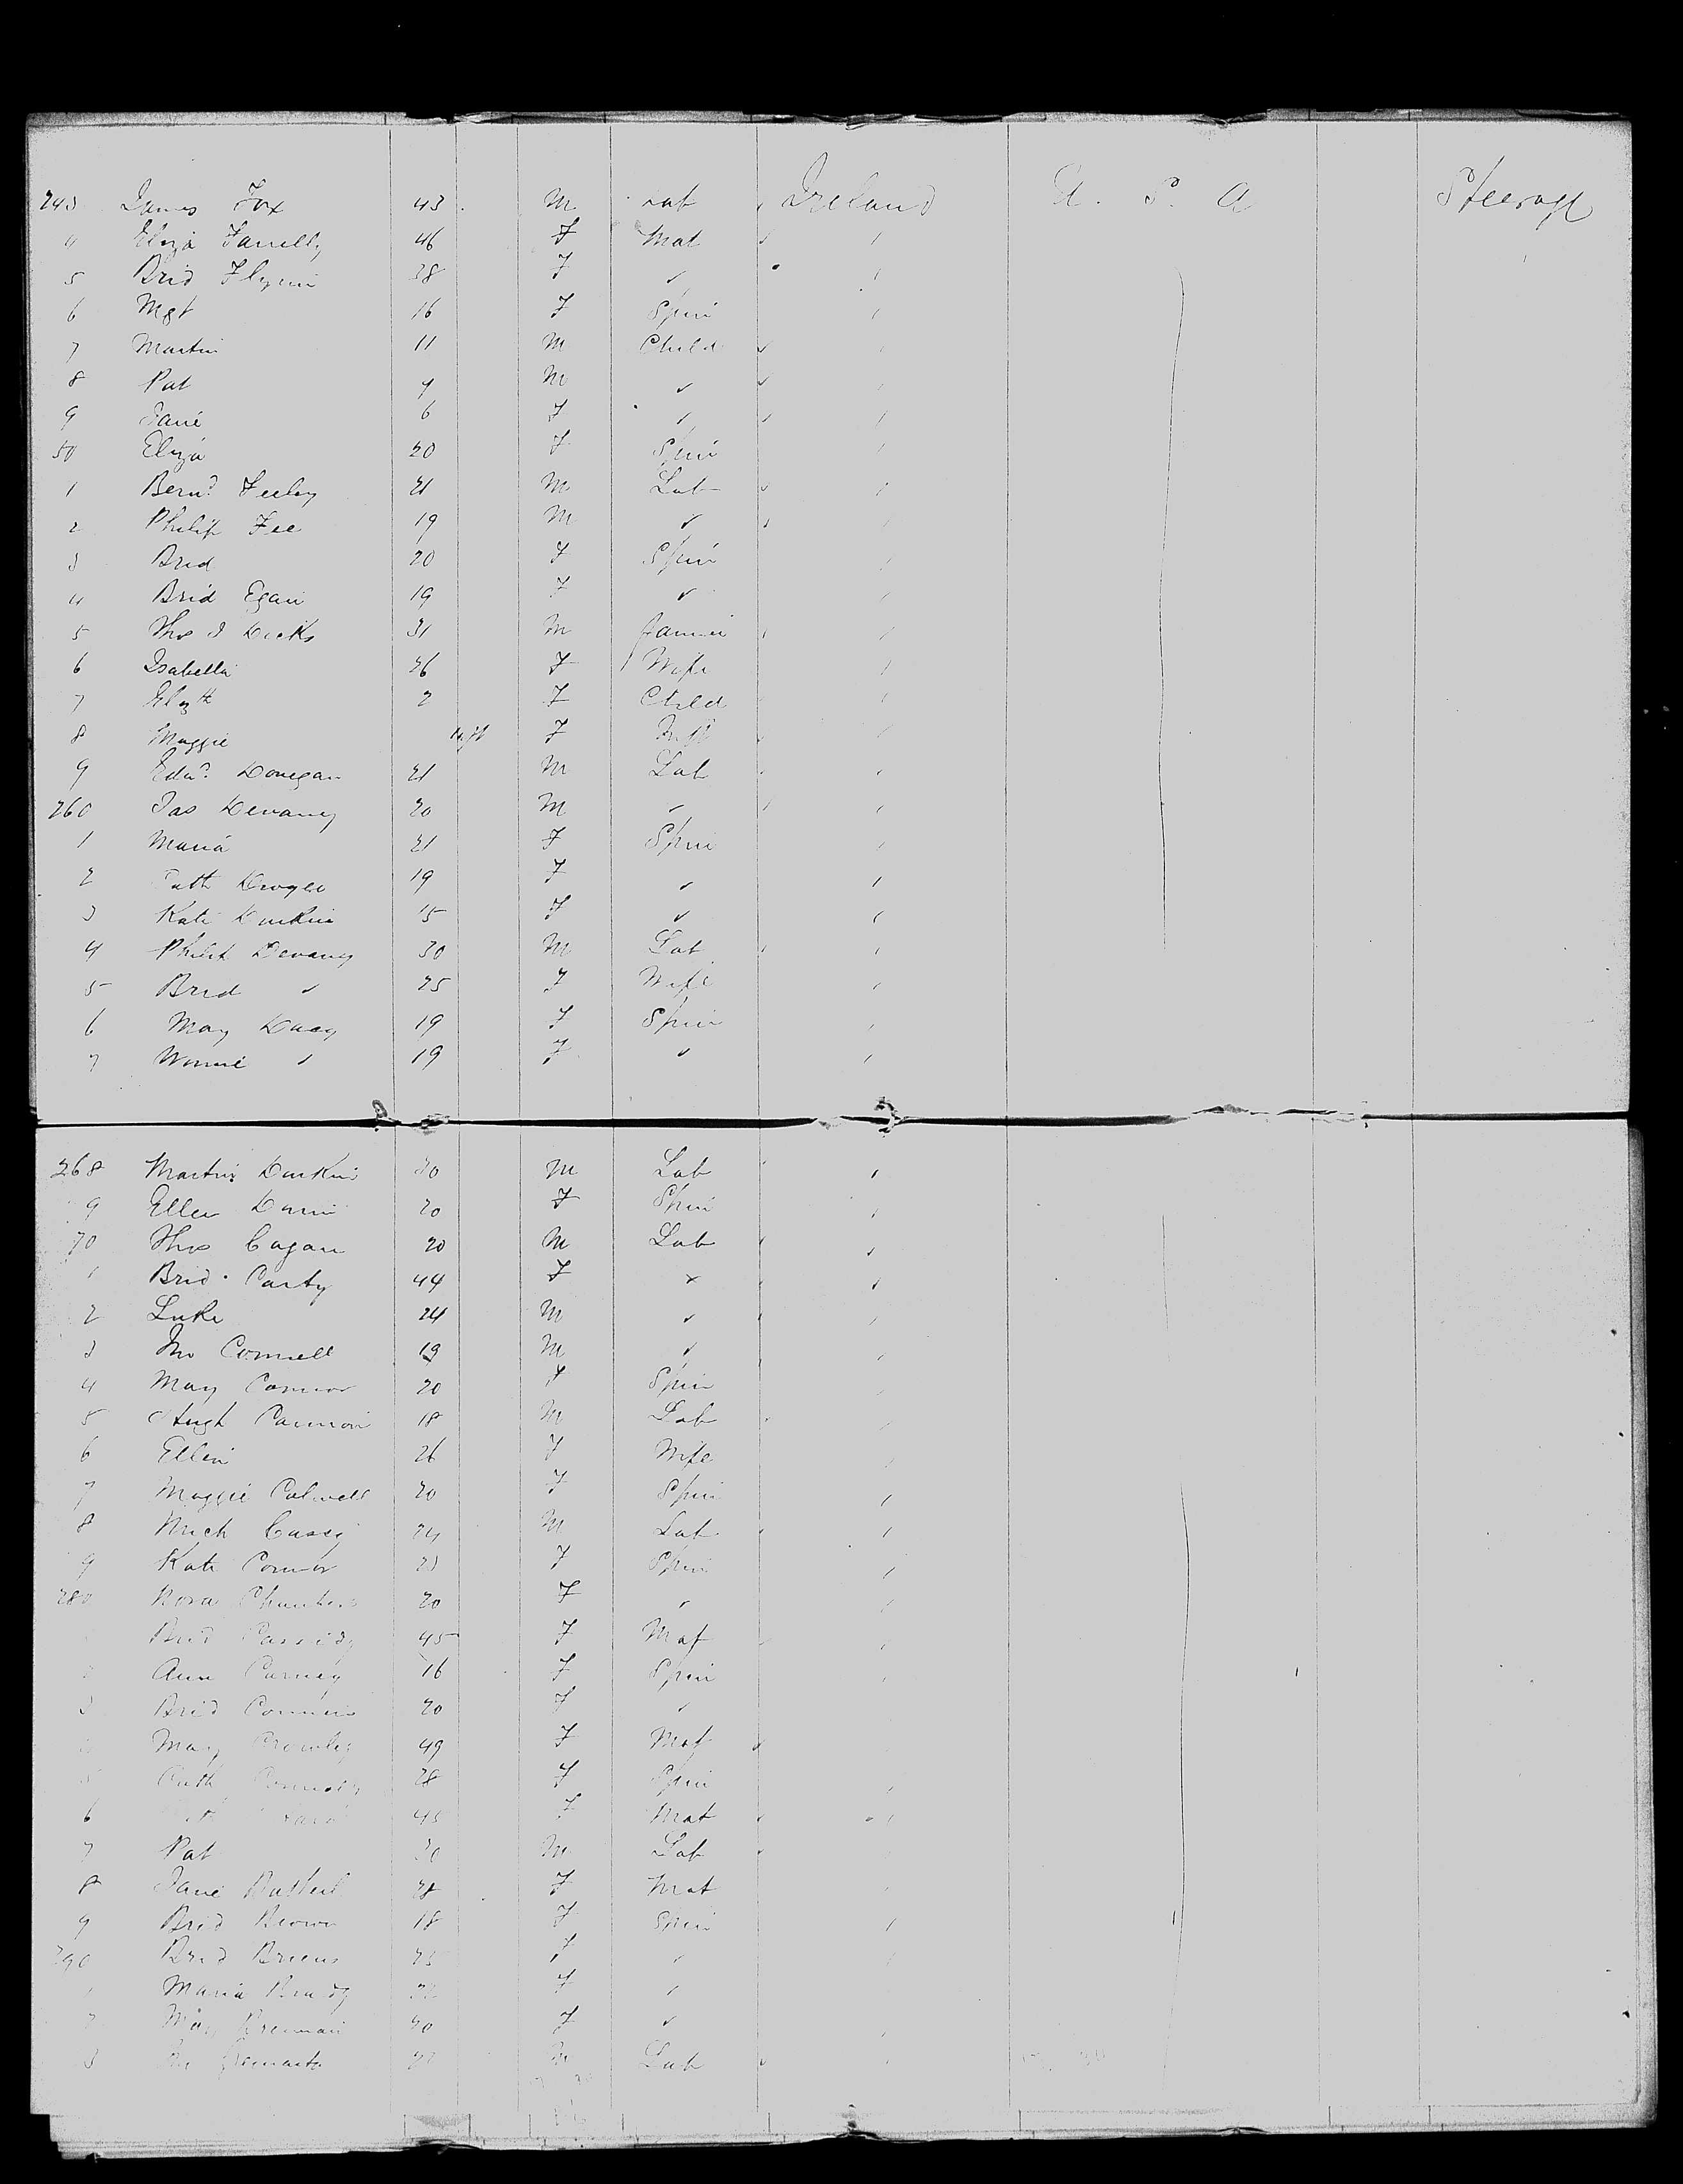 243 James Fox 43 M Lab Ireland U. S. A Steerage
4 Eliza Farrelly 46 F Mat "
5 Brid Flynn 38 F " "
6 Mgt 16 F Spin "
7 Martin 11 M Child "
8 Pat 9 M " "
9 Jane 6 F " "
50 Eliza 20 F Spin "
1 Bernd Feeley 21 M Lab "
2 Philip Fee 19 M " "
3 Brid 20 F Spin "
4 Brid Egan 19 F " "
5 Thos J Dicks 31 M "
6 Isabella 26 F Wife "
7 Elizth 2 F Child "
8 Maggie Inft F Inft "
9 Edwd Donegan 21 M Lab "
260 Jas Devaney 20 M " "
1 Maria 21 F Spin "
2 Cath 19 F " "
3 Kate Durkin 15 F " "
4 Philip Devaney 30 M Lab "
5 Brid " 25 F Wife "
6 Mary Davy 19 F Spin "
7 Winnie " 19 F " "
268 Martin Durkin 20 M Lab "
9 Ellen Dunn 20 F Spin "
70 Thos Cagan 20 M Lab "
1 Brid Carty 44 F " "
2 Luke 24 M " "
3 Jno Connell 19 M " "
4 Mary Connor 20 F Spin "
5 Hugh Cannon 18 M Lab "
6 Ellen 26 F Wife "
7 Maggie Colwell 20 F Spin "
8 Mich Casey 24 M Lab "
9 Kate Connor 23 F Spin "
280 Nora Chambers 20 F " "
Brid Cassidy 45 F Mat "
2 Ann Carney 16 F Spin "
3 Brid Conners 20 F "
4 Mary Crowley 49 F Mat
5 Cath Connolly 28 F Spin "
6 45 F Mat "
7 Pat 30 M Lab
8 Jane 28 F Mat
9 Brid Brown 18 F Spin "
290 Brid Briens 25 F " "
1 Maria Brady F "
2 Mary Brennan 20 F " "
3 M Lab "